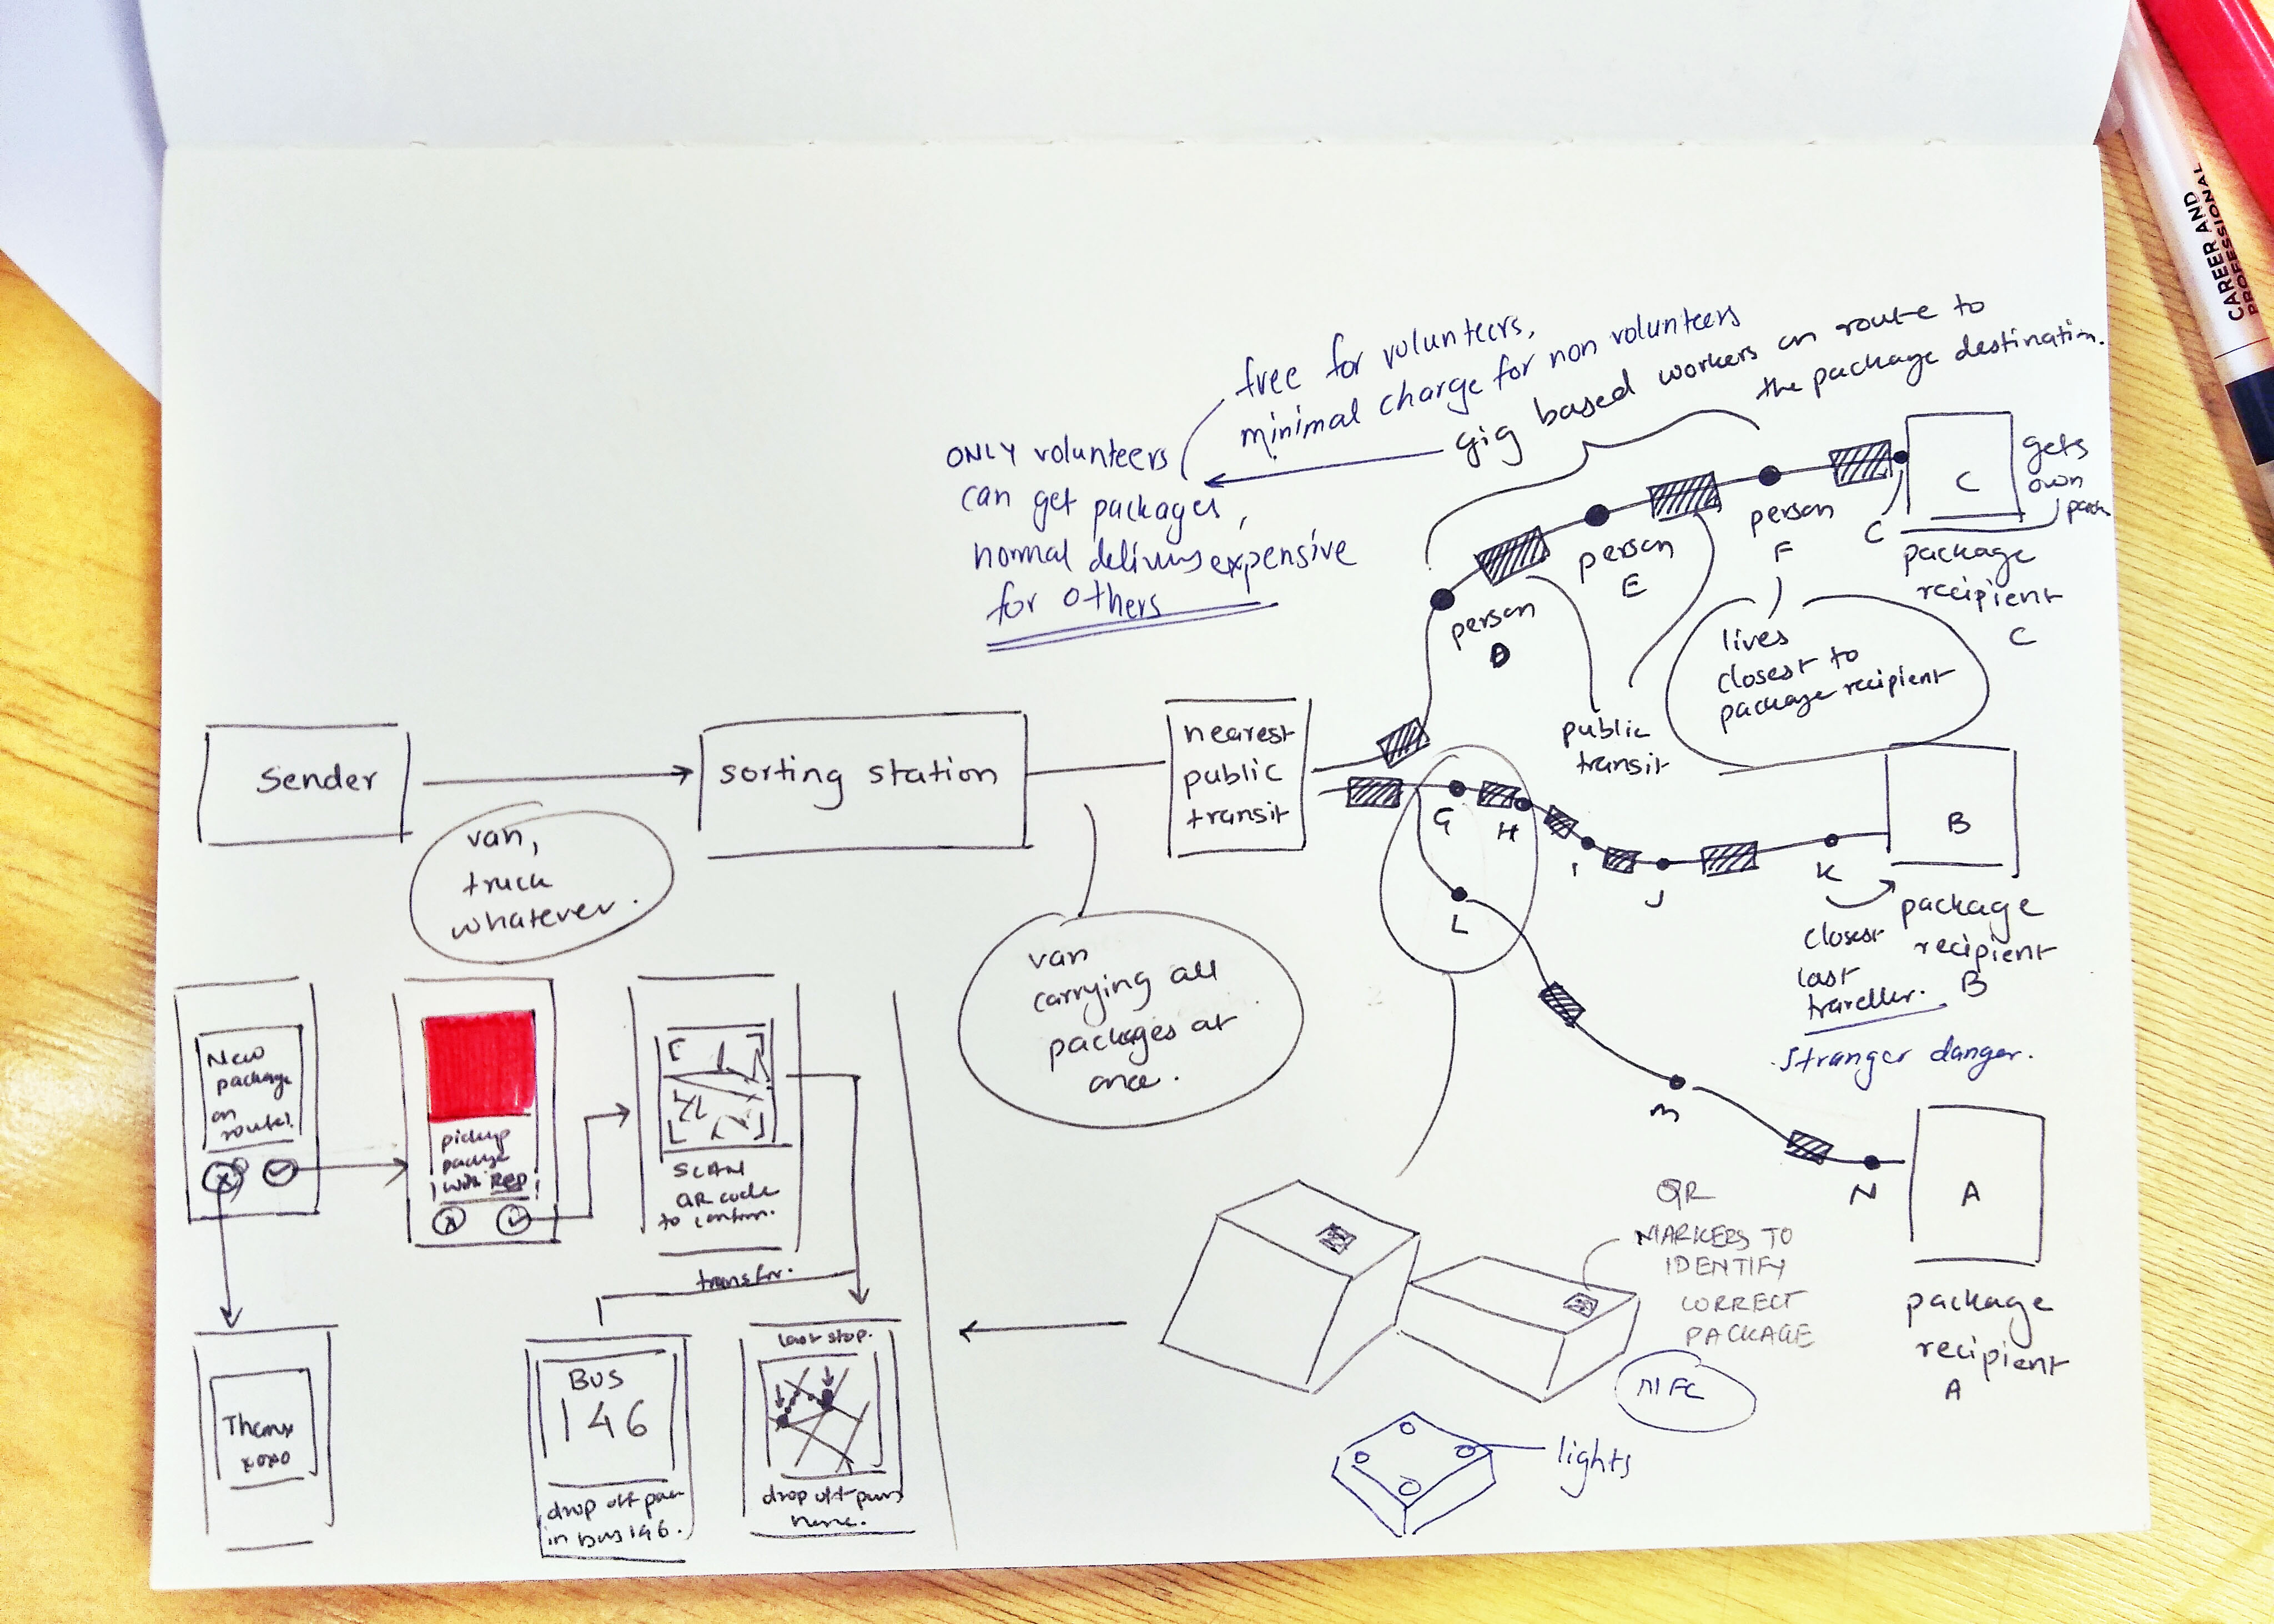 CAREER AND
PROFESSIONAL
free for volunteers,
minimal charge for non volunteers
gig based workers on route to
the package destination.
ONLY volunteers
can get packages,
normal expensive
for others
person
D
person
E
person
F
C
C
gets
own
package
recipient
C
lives
closest to
package recipient
public
transit
Sender
sorting station
nearest
public
transit
van,
truck
whatever.
van
carrying all
packages at
once.
G
H
I
J
K
L
M
N
B
package
recipient
B
closest
last
traveller.
stranger danger.
A
package
recipient
A
New
package
on
route!
pickup
package
with Rep!
SCAN
QR code
to confirm.
transfr.
Thanx
xoxo
BUS
146
drop off
in Bus 146.
last stop.
drop off
here.
QR
MARKERS TO
IDENTIFY
CORRECT
PACKAGE
NFC
lights